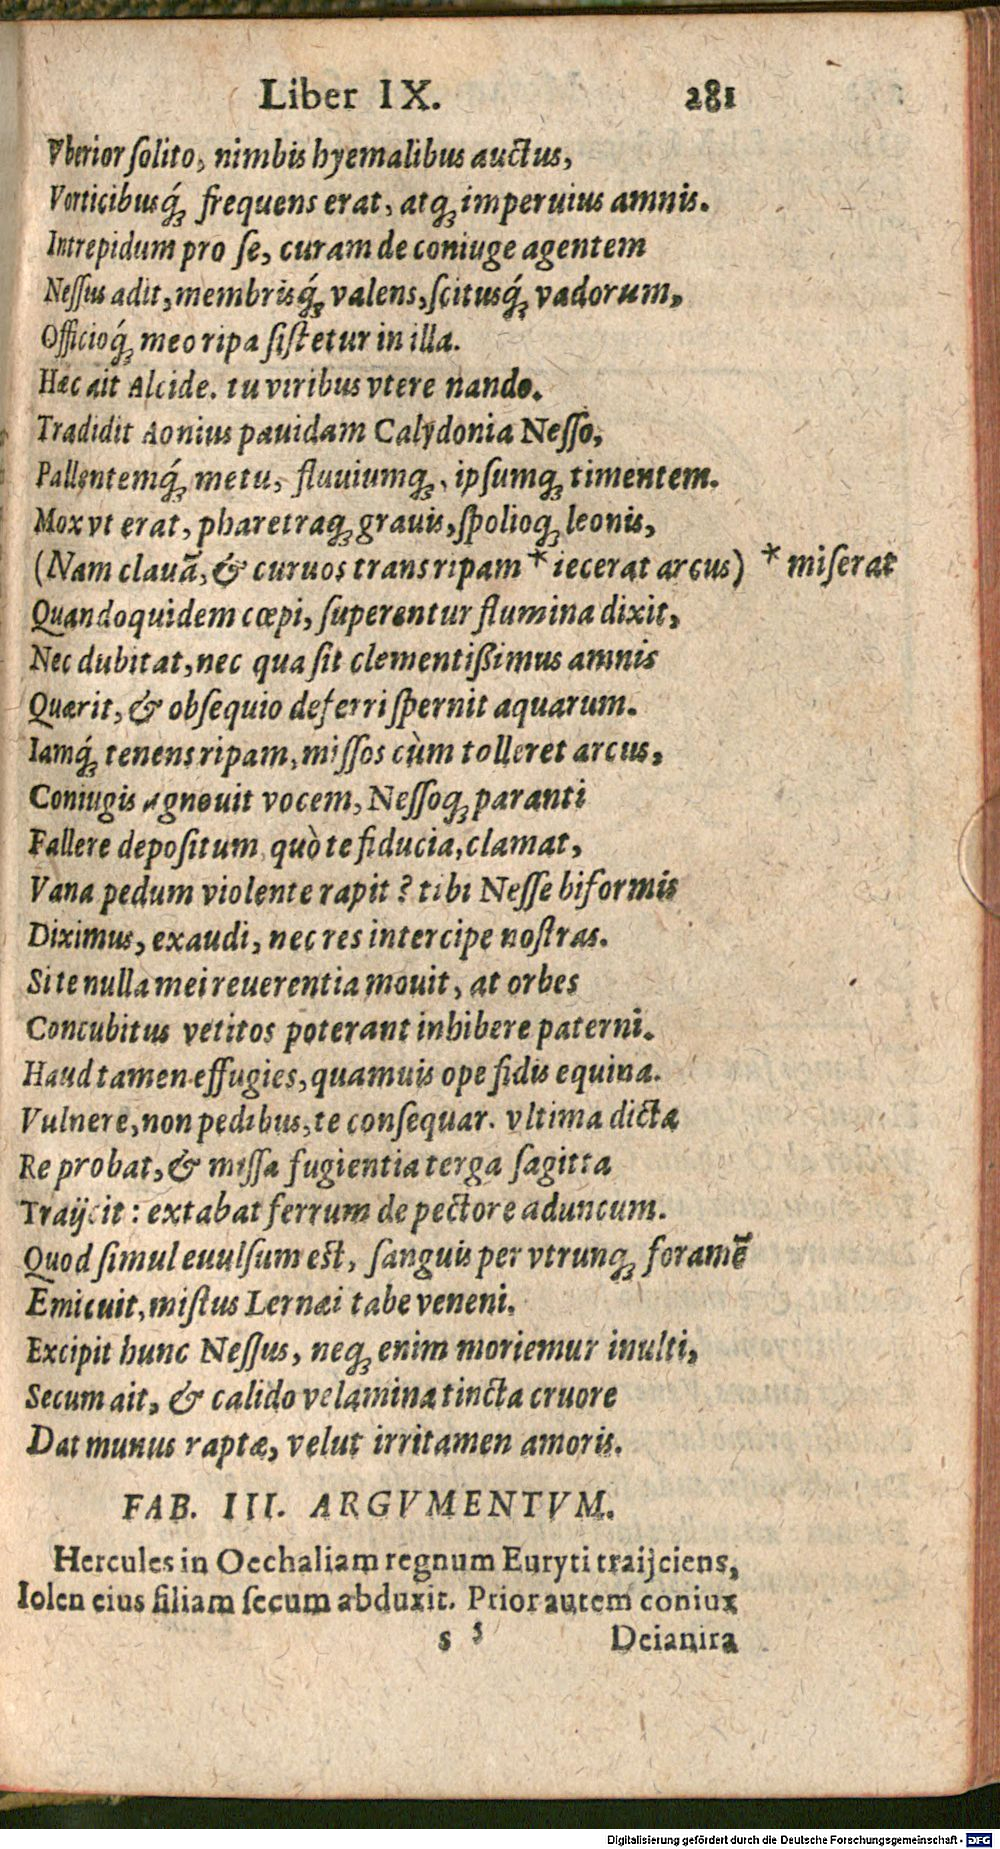 Liber IX. 281
Vberior ſolito, nimbis hyemalibus auctus,
Vorticibusq́; frequens erat, atq; imperuius amnis.
Intrepidum pro ſe, curam de coniuge agentem
Neſſus adit, membrisq́; valens, ſcitusq́; vadorum,
Officioq́; meo ripa ſiſtetur in illa.
Hæc ait Alcide. tu viribus vtere nando.
Tradidit Aonius pauidam Calydonia Neſſo,
Pallentemq́; metu, fluuiumq;, ipſumq; timentem.
Mox vt erat, pharetraq; grauis, ſpolioq; leonis,
(Nam clauā, & curuos trans ripam * iecerat arcus) * miſerat
Quandoquidem cœpi, ſuperentur flumina dixit,
Nec dubitat, nec qua ſit clementißimus amnis
Quærit, & obſequio deferri ſpernit aquarum.
Iamq́; tenens ripam, miſſos cùm tolleret arcus,
Coniugis agnouit vocem, Neſſoq; paranti
Fallere depoſitum, quò te fiducia, clamat,
Vana pedum violente rapit? tibi Neſſe biformis
Diximus, exaudi, nec res intercipe noſtras.
Si te nulla mei reuerentia mouit, at orbes
Concubitus vetitos poterant inhibere paterni.
Haud tamen effugies, quamuis ope fidis equina.
Vulnere, non pedibus, te conſequar. vltima dicta
Re probat, & miſſa fugientia terga ſagitta
Traijcit: extabat ferrum de pectore aduncum.
Quod ſimul euulſum eſt, ſanguis per vtrunq; foramē
Emicuit, miſtus Lernæi tabe veneni.
Excipit hunc Neſſus, neq; enim moriemur inulti,
Secum ait, & calido velamina tincta cruore
Dat munus raptæ, velut irritamen amoris.
FAB. III. ARGVMENTVM.
Hercules in Oechaliam regnum Euryti traijciens,
Iolen eius filiam ſecum abduxit. Prior autem coniux
s 5 Deianira
Digitalisierung gefördert durch die Deutsche Forschungsgemeinschaft - DFG